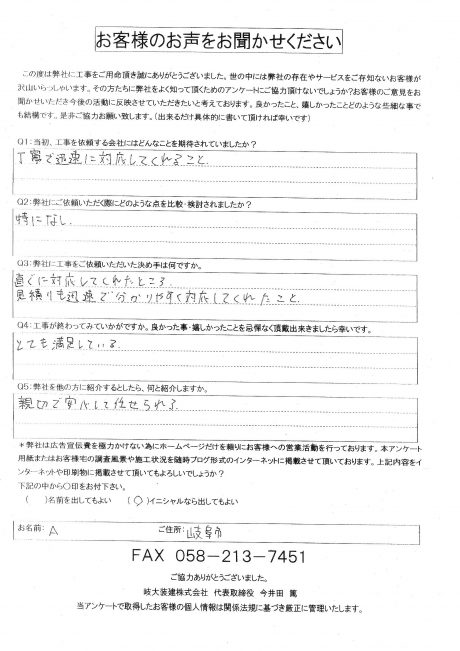 お客様のお声をお聞かせください
この度は弊社に工事をご用命頂き誠にありがとうございました。世の中には弊社の存在やサービスをご存知ないお客様が
沢山いらっしゃいます。その方たちに弊社をよく知って頂くためのアンケートにご協力頂けないでしょうか?お客様のご意見をお
聞かせいただき今後の活動に反映させていただきたいと考えております。良かったこと、嬉しかったことどのような些細な事で
も結構です。是非ご協力お願い致します。(出来るだけ具体的に書いて頂ければ幸いです)
Q1:当初、工事を依頼する会社にはどんなことを期待されていましたか?
丁寧で迅速に対応してくれること
Q2:弊社にご依頼いただく際にどのような点を比較・検討されましたか?
特になし.
Q3:弊社に工事をご依頼いただいた決め手は何ですか。
直ぐに対応してくれたところ.
見積りも迅速で分かりやすく対応してくれたこと.
Q4:工事が終わってみていかがですか。良かった事・嬉しかったことを忌憚なく頂戴出来ましたら幸いです。
とても満足している.
Q5:弊社を他の方に紹介するとしたら、何と紹介しますか。
親切で安心して任せられる.
*弊社は広告宣伝費を極力かけない為にホームページだけを頼りにお客様への営業活動を行っております。本アンケート
用紙またはお客様宅の調査風景や施工状況を随時ブログ形式のインターネットに掲載させて頂いております。上記内容をイ
ンターネットや印刷物に掲載させて頂いてもよろしいでしょうか?
下記の中から〇印をお付下さい。
( )名前を出してもよい (○)イニシャルなら出してもよい
お名前: A ご住所: 岐阜市
FAX 058-213-7451
ご協力ありがとうございました。
岐大装建株式会社 代表取締役 今井田 篤
当アンケートで取得したお客様の個人情報は関係法規に基づき厳正に管理いたします。